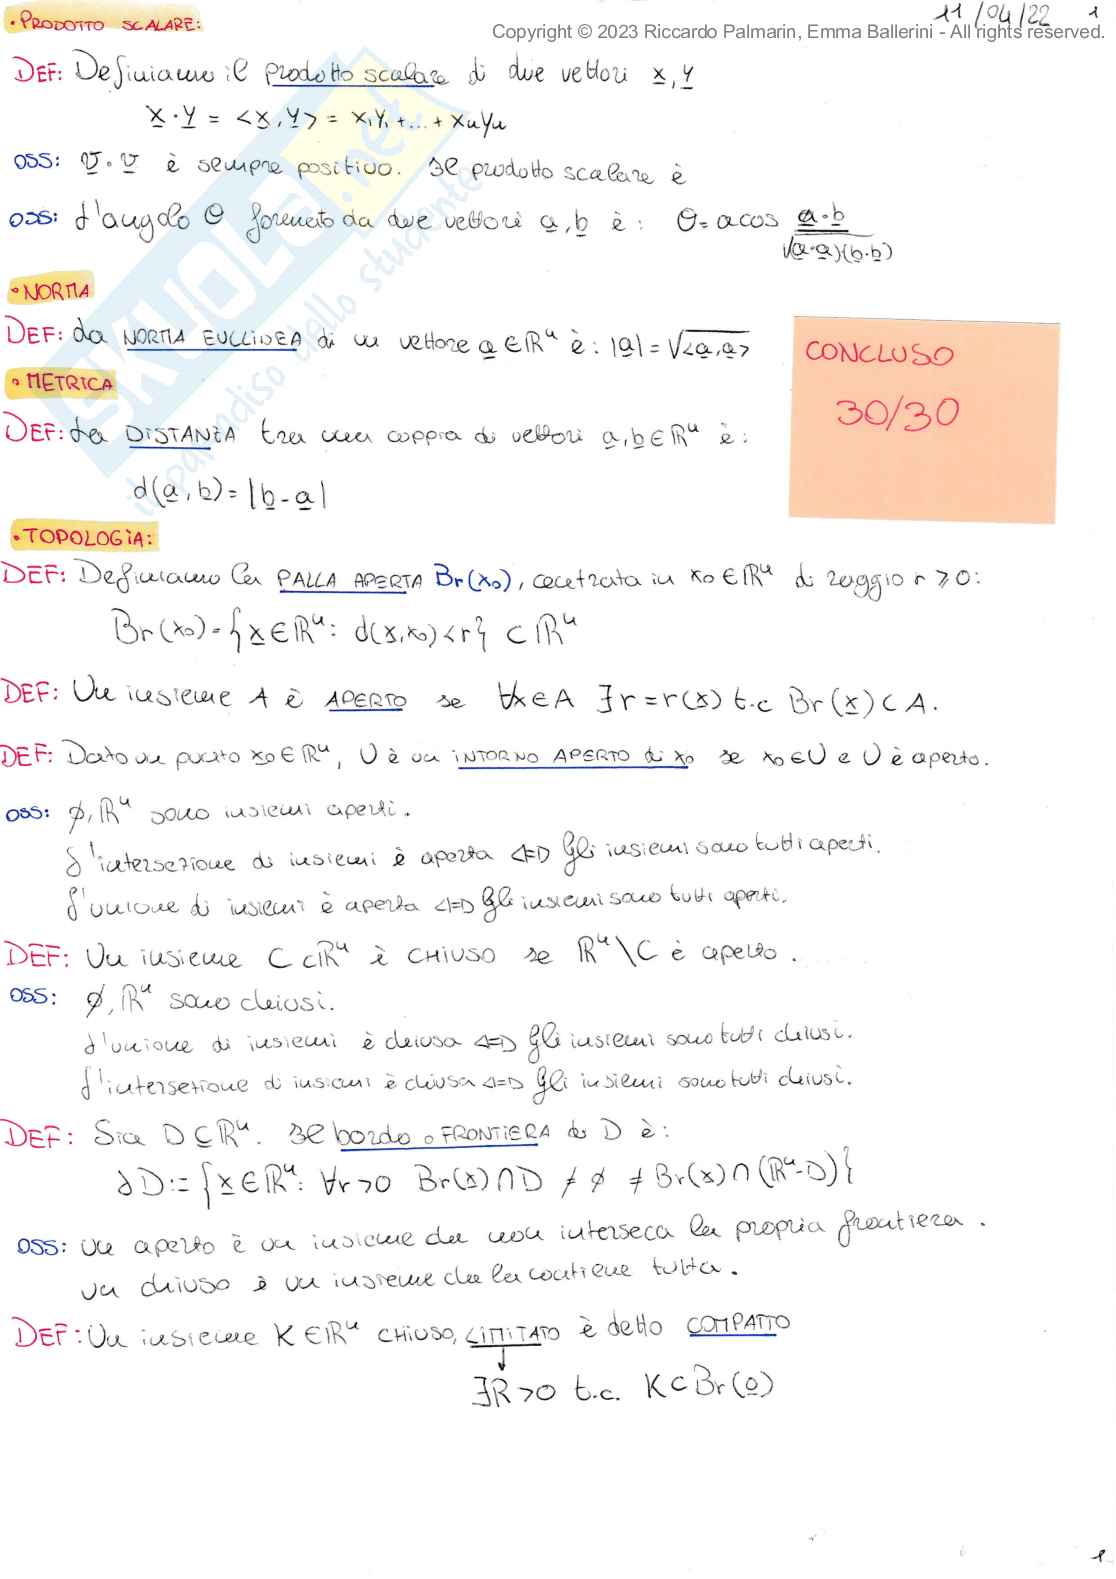 11/04/22 1
Copyright © 2023 Riccardo Palmarin, Emma Ballerini - All rights reserved.
• PRODOTTO SCALARE:
DEF: Definiamo il prodotto scalare di due vettori x, y
x · y = <x, y> = x₁y₁ + ... + xₙyₙ
OSS: v · v è sempre positivo. Il prodotto scalare è
OSS: L'angolo θ formato da due vettori a, b è: θ = acos a·b / √(a·a)(b·b)
• NORMA
DEF: La NORMA EUCLIDEA di un vettore a ∈ ℝⁿ è: |a| = √<a,a>
CONCLUSO
30/30
• METRICA
DEF: La DISTANZA tra una coppia di vettori a, b ∈ ℝⁿ è:
d(a, b) = |b - a|
• TOPOLOGIA:
DEF: Definiamo la PALLA APERTA Br(x₀), centrata in x₀ ∈ ℝⁿ di raggio r ⩾ 0:
Br(x₀) = {x ∈ ℝⁿ: d(x, x₀) < r} ⊂ ℝⁿ
DEF: Un insieme A è APERTO se ∀x ∈ A ∃ r = r(x) t.c Br(x) ⊂ A.
DEF: Dato un punto x₀ ∈ ℝⁿ, U è un INTORNO APERTO di x₀ se x₀ ∈ U e U è aperto.
OSS: ∅, ℝⁿ sono insiemi aperti.
L'intersezione di insiemi è aperta <=> Gli insiemi sono tutti aperti.
L'unione di insiemi è aperta <=> Gli insiemi sono tutti aperti.
DEF: Un insieme C ⊂ ℝⁿ è CHIUSO se ℝⁿ\C è aperto.
OSS: ∅, ℝⁿ sono chiusi.
L'unione di insiemi è chiusa <=> Gli insiemi sono tutti chiusi.
L'intersezione di insiemi è chiusa <=> Gli insiemi sono tutti chiusi.
DEF: Sia D ⊆ ℝⁿ. Il bordo o FRONTIERA di D è:
∂D := {x ∈ ℝⁿ: ∀r > 0 Br(x) ∩ D ≠ ∅ ≠ Br(x) ∩ (ℝⁿ - D)}
OSS: un aperto è un insieme che non interseca la propria frontiera.
un chiuso è un insieme che la contiene tutta.
DEF: Un insieme K ∈ ℝⁿ CHIUSO, LIMITATO è detto COMPATTO
↓
∃R > 0 t.c. K ⊂ Br(0)
1
SKUOLA.net
il paradiso dello studente